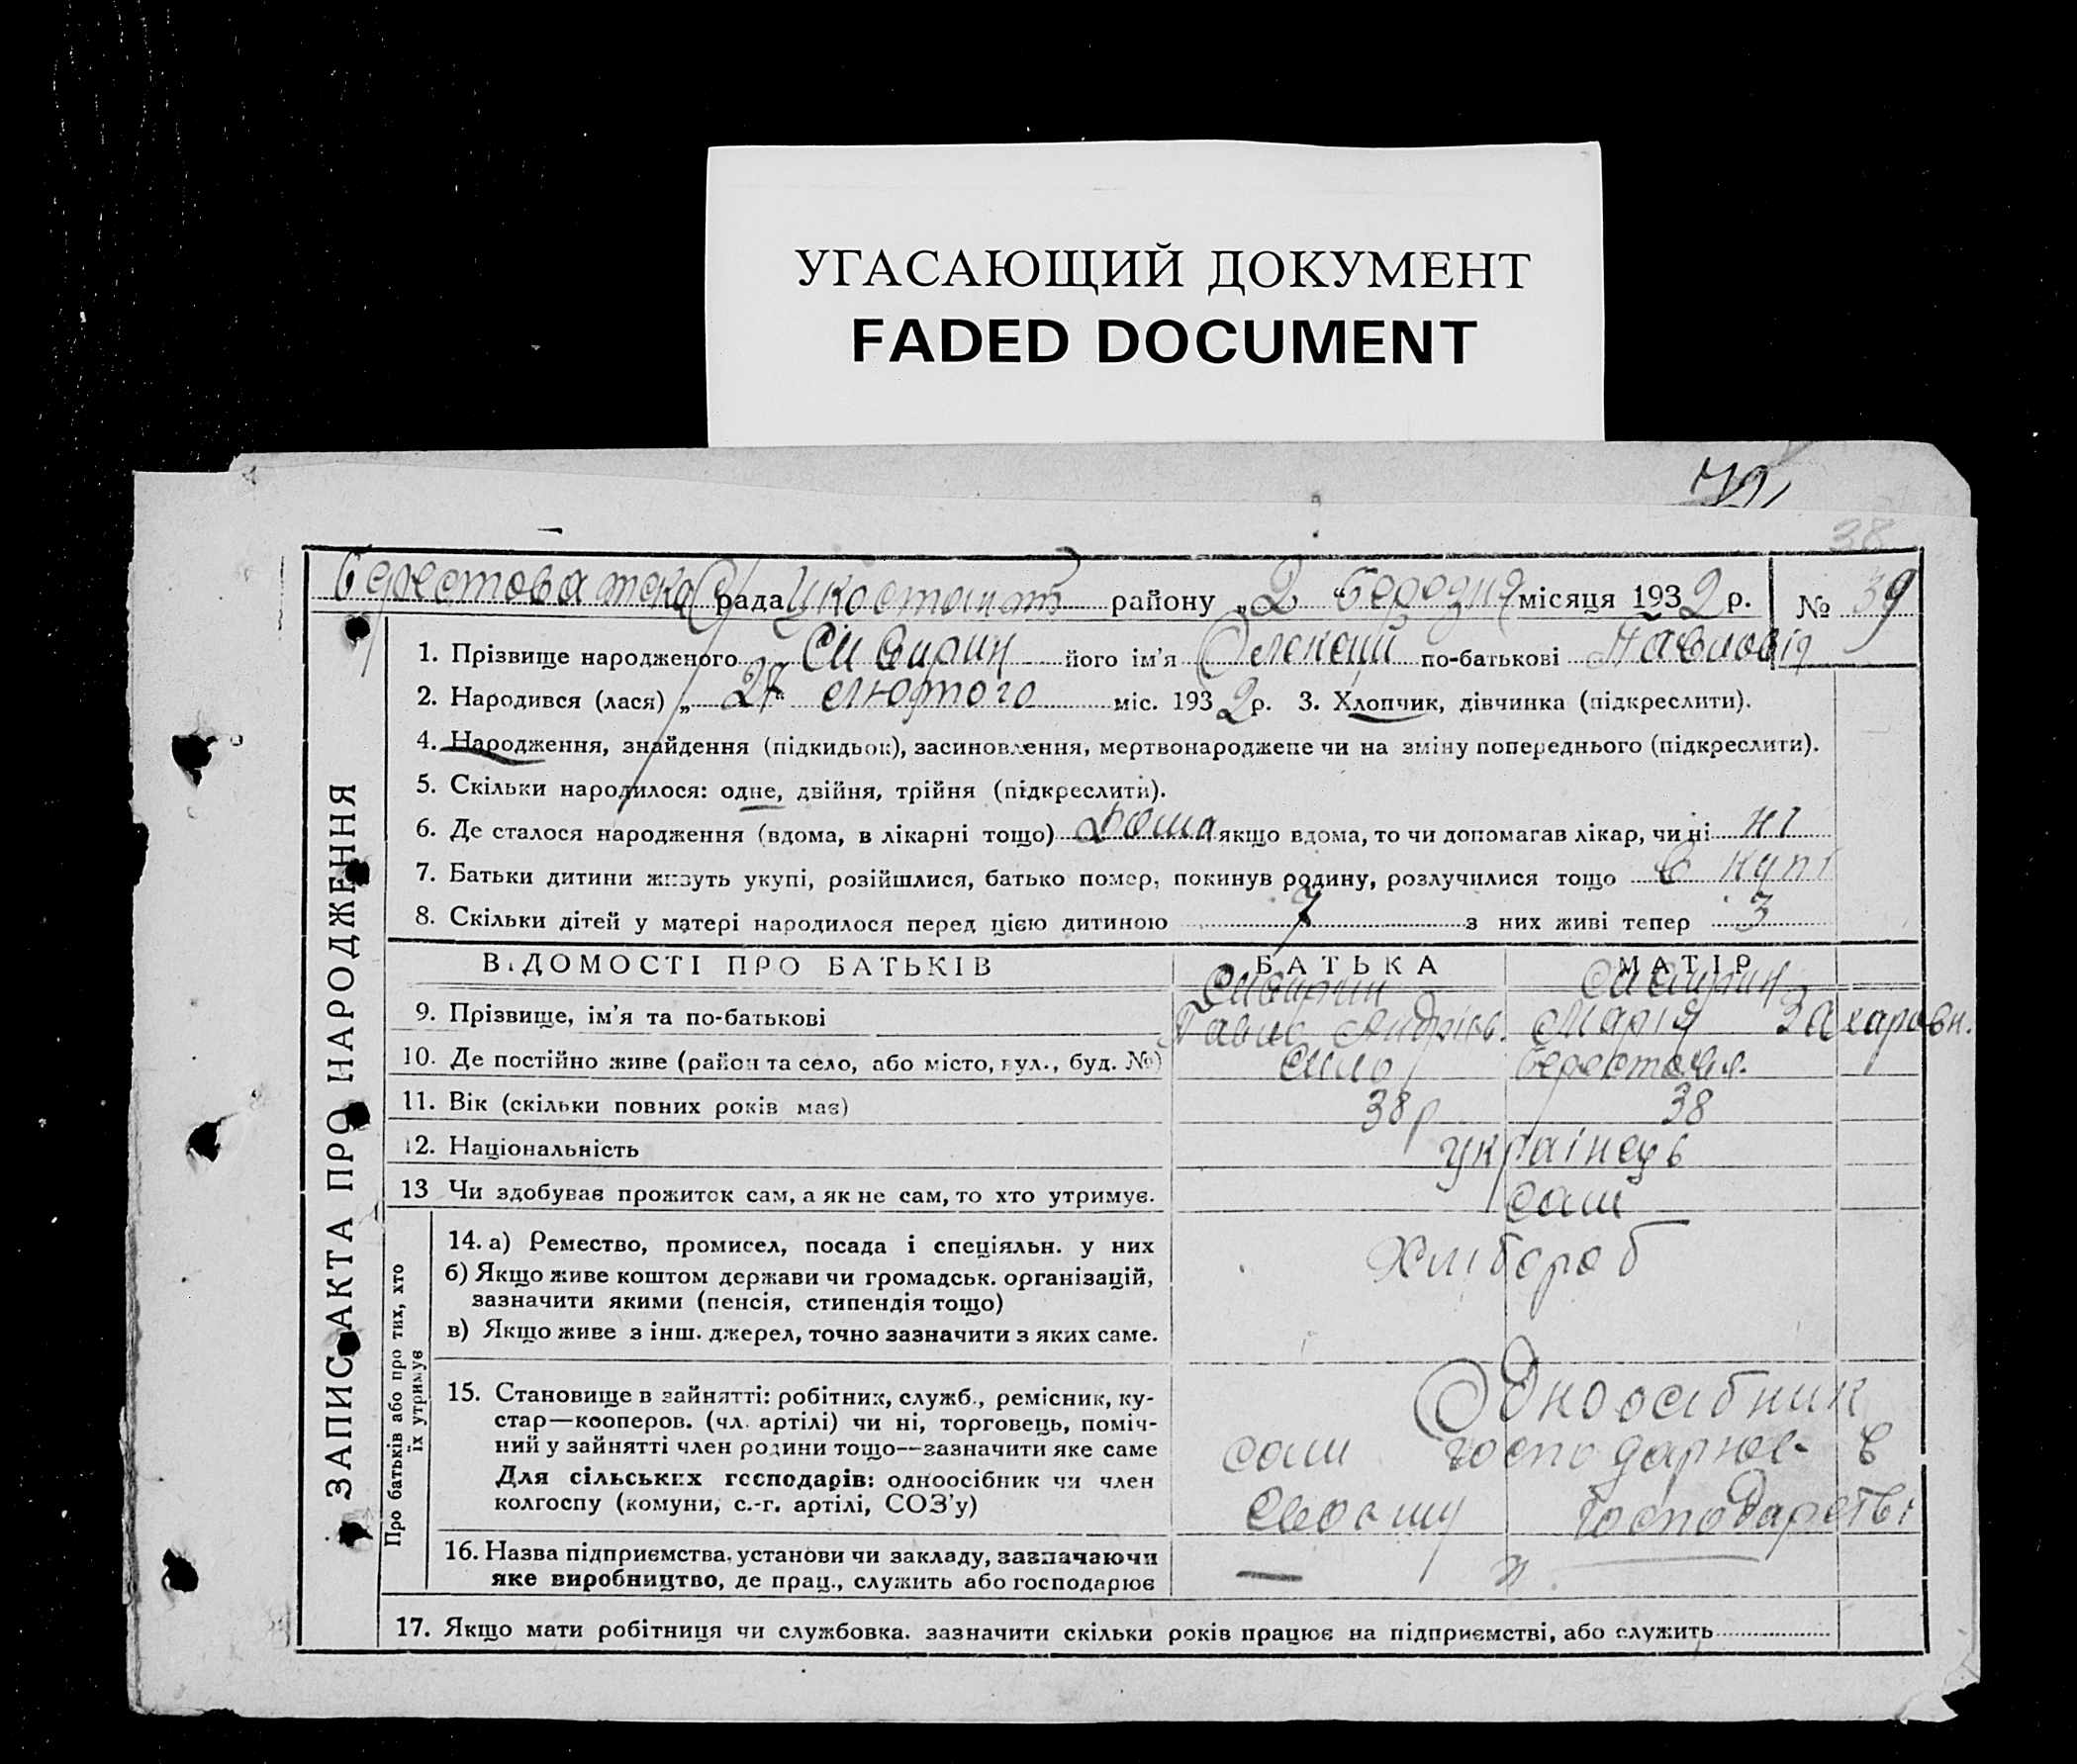 УГАСАЮЩИЙ ДОКУМЕНТ
FADED DOCUMENT
38
рада району „2" Березня місяця 1932 р. № 39
1. Прізвище народженого Сивирин його ім'я Олексій по-батькові Павлові
2. Народився (лася) „27" лютого міс. 1932 р. 3. Хлопчик, дівчинка (підкреслити).
4. Народження, знайдення (підкидьок), засиновлення, мертвонароджене чи на зміну попереднього (підкреслити).
5. Скільки народилося: одне, двійня, трійня (підкреслити).
6. Де сталося народження (вдома, в лікарні тощо) Дома якщо вдома, то чи допомагав лікар, чи ні ні
7. Батьки дитини живуть укупі, розійшлися, батько помер, покинув родину, розлучилися тощо в купі
8. Скільки дітей у матері народилося перед цією дитиною 7 з них живі тепер 3
ЗАПИС АКТА ПРО НАРОДЖЕННЯ
ВІДОМОСТІ ПРО БАТЬКІВ БАТЬКА МАТІР
Сивирин Сивирин
9. Прізвище, ім'я та по-батькові Павло Андрієв. Марія Захаровн.
10. Де постійно живе (район та село, або місто, вул., буд. №) село
11. Вік (скільки повних років має) 38 р 38
12. Національність українець
13 Чи здобував прожиток сам, а як не сам, то хто утримує. сам
Про батьків або про тих, хто
їх утримує
14. а) Ремество, промисел, посада і спеціяльн. у них
хлібороб
б) Якщо живе коштом держави чи громадськ. організацій,
зазначити якими (пенсія, стипендія тощо)
в) Якщо живе з інш. джерел, точно зазначити з яких саме.
15. Становище в зайнятті: робітник, служб., ремісник, ку-
Одноосібник
стар—кооперов. (чл. артілі) чи ні, торговець, поміч-
ний у зайнятті член родини тощо—зазначити яке саме
сам господарює в
Для сільських господарів: одноосібник чи член
колгоспу (комуни, с.-г. артілі, СОЗ'у)
своєму господарстві
16. Назва підприємства, установи чи закладу, зазначаючи
яке виробництво, де прац., служить або господарює —
17. Якщо мати робітниця чи службовка. зазначити скільки років працює на підприємстві, або служить